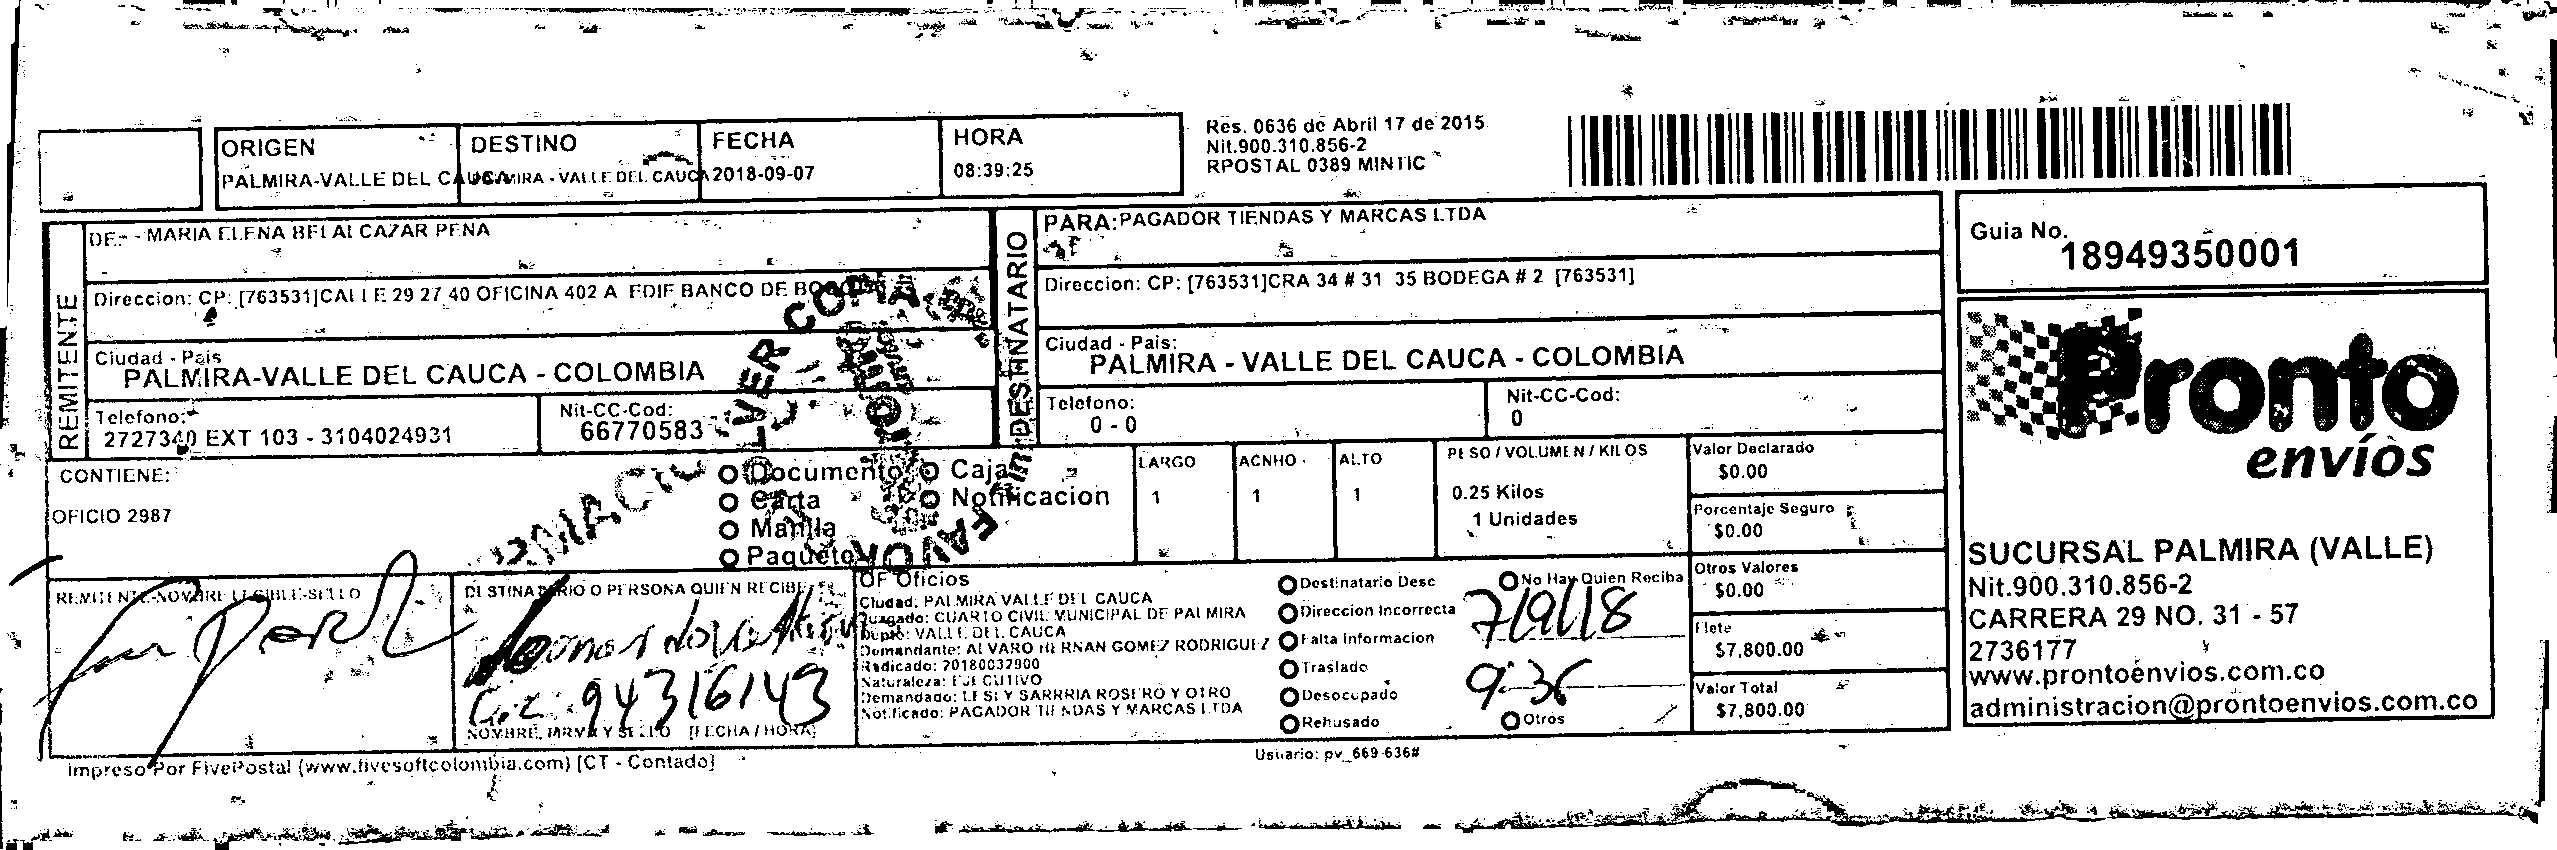 ORIGEN
PALMIRA-VALLE DEL CAUCA
DESTINO
PALMIRA - VALLE DEL CAUCA
FECHA
2018-09-07
HORA
08:39:25
Res. 0636 de Abril 17 de 2015
Nit.900.310.856-2
RPOSTAL 0389 MINTIC
REMITENTE
DE: - MARIA ELENA BELALCAZAR PENA
Direccion: CP: [763531]CALLE 29 27 40 OFICINA 402 A EDIF BANCO DE BOGOTA
Ciudad - Pais
PALMIRA-VALLE DEL CAUCA - COLOMBIA
Telefono:
2727340 EXT 103 - 3104024931
Nit-CC-Cod:
66770583
DESTINATARIO
PARA: PAGADOR TIENDAS Y MARCAS LTDA
Direccion: CP: [763531]CRA 34 # 31 35 BODEGA # 2 [763531]
Ciudad - Pais:
PALMIRA - VALLE DEL CAUCA - COLOMBIA
Telefono:
0 - 0
Nit-CC-Cod:
0
Guia No.
18949350001
Pronto
envíos
SUCURSAL PALMIRA (VALLE)
Nit.900.310.856-2
CARRERA 29 NO. 31 - 57
2736177
www.prontoenvios.com.co
administracion@prontoenvios.com.co
CONTIENE:
OFICIO 2987
Documento
Carta
Manilla
Paquete
Caja
Notificacion
FAVOR DEVOLVER COPIA
LARGO
1
ACNHO
1
ALTO
1
PESO / VOLUMEN / KILOS
0.25 Kilos
1 Unidades
Valor Declarado
$0.00
Porcentaje Seguro
$0.00
Otros Valores
$0.00
Flete
$7,800.00
Valor Total
$7,800.00
REMITENTE-NOMBRE LEGIBLE-SELLO
DESTINATARIO O PERSONA QUIEN RECIBE
C.c. 94316143
NOMBRE, FIRMA Y SELLO [FECHA / HORA]
OF Oficios
Ciudad: PALMIRA VALLE DEL CAUCA
Juzgado: CUARTO CIVIL MUNICIPAL DE PALMIRA
Depto: VALLE DEL CAUCA
Demandante: ALVARO HERNAN GOMEZ RODRIGUEZ
Radicado: 20180032900
Naturaleza: EJECUTIVO
Demandado: LESLY SARRRIA ROSERO Y OTRO
Notificado: PAGADOR TIENDAS Y MARCAS LTDA
Destinatario Desc
Direccion Incorrecta
Falta Informacion
Traslado
Desocupado
Rehusado
No Hay Quien Reciba
7/9/18
9:36
Otros
Impreso Por FivePostal (www.fivesoftcolombia.com) [CT - Contado]
Usuario: pv_669-636#